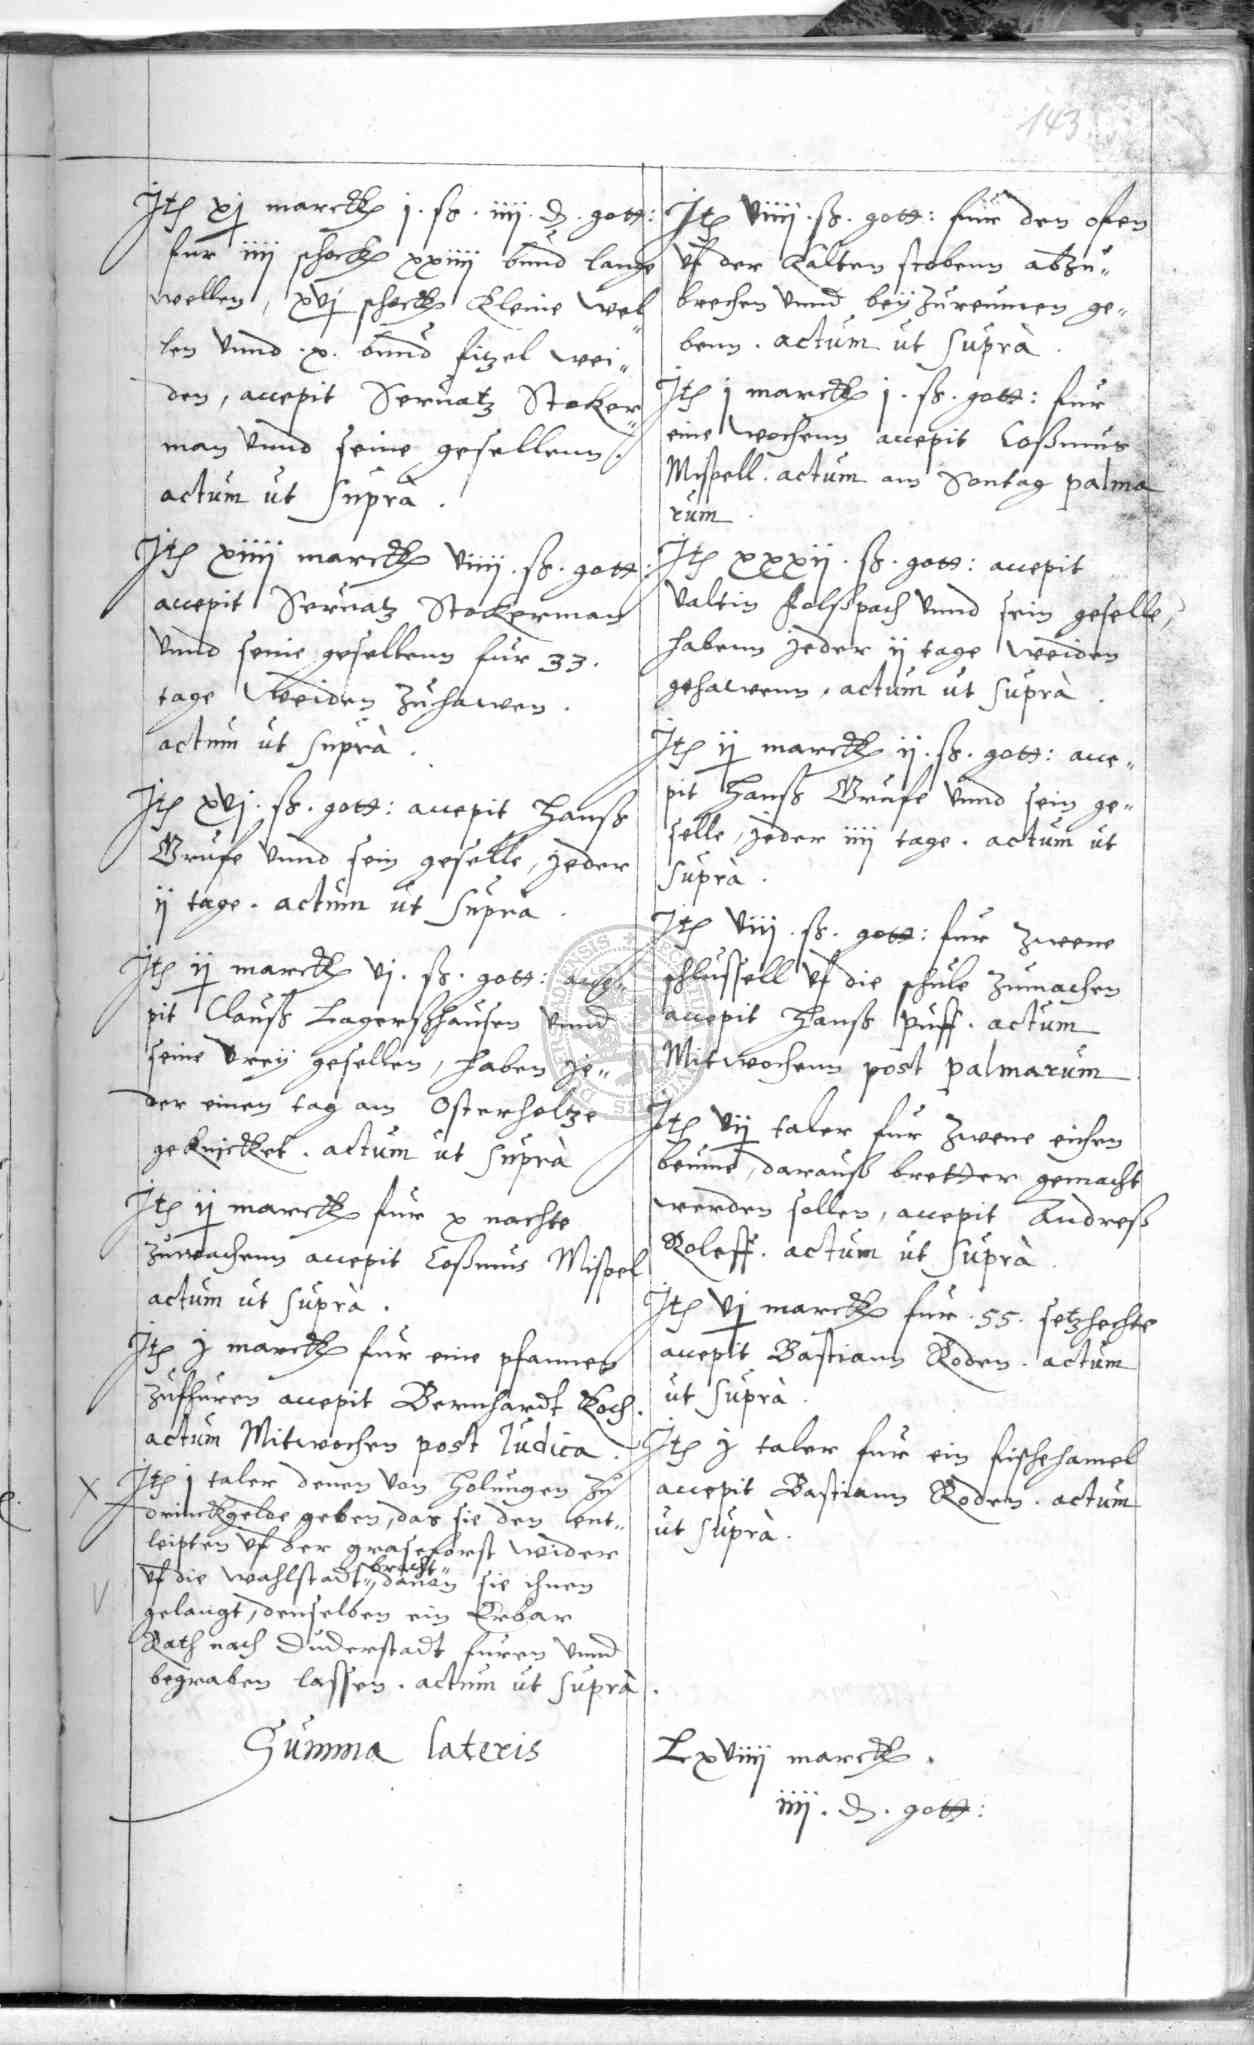 143
Jtem xj marck j. ß. iiij. d. gott:
fur iiij schock xxiiij bund lange
wellen, xvj schock kleine wel„
len vnnd .x. bund fitzel wei„
den, accepit Servatz Stoker„
man vnnd seine gesellenn.
actum ut suprà.
Jtem xiiij marck viiij. ß. gott:
accepit Servatz Stokerman
vnnd seine gesellenn fur 33.
tage weiden zuhawen.
actum ut suprà.
Jtem xvj. ß. gott: accepit Hanß
Grufe vnnd sein geselle, jeder
ij tage. actum ut suprà.
Jtem ij marck vj. ß. gott: acce„
pit Clauß Lagerßhausen vnnd
seine drey gesellen, haben je„
der einen tag am Osterholtze
geknicket. actum ut suprà
Jtem ij marck fur x nachte
zuwachenn accepit Coßmus Mispel
actum ut suprà.
Jtem j marck fur eine pfannen
zuffuren accepit Bernhardt Koch.
actum Mitwochen post Judica.
Jtem j taler denen von Holungen zu
drinckgelde geben, das sie den ent„
leipten vf der graseforst wider
bracht
vf die wahlstadt„, dauon sie ihnen
gelangt, denselben ein Erbar
Rath nach Duderstadt furen vnnd
begraben lassen. actum ut suprà.
Jtem viiij. ß. gott: fur den ofen
vf der kalten stobenn abzu„
brechen vnnd bey zureumen ge„
benn. actum ut suprà.
Jtem j marck j. ß. gott: fur
eine wochenn accepit Coßmus
Mispell. actum am Sontag palma
rum.
Jtem xxxij. ß. gott: accepit
Valtin Folßpach vnnd sein geselle,
habenn jeder ij tage weiden
gehawenn, actum ut suprà.
Jtem ij marck ij. ß. gott: acce„
pit Hanß Grufe vnnd sein ge„
selle, jeder iiij tage. actum ut
suprà.
Jtem viij. ß. gott: fur zweene
schlussell vf die schule zumachen
accepit Hanß Puff. actum
Mitwochenn post palmarum
Jtem vij taler fur zweene eichen
beume, darauß bretter gemacht
werden sollen, accepit Andreß
Roleff. actum ut suprà.
Jtem vj marck fur .55. setzhechte
accepit Bastiann Roden. actum
ut suprà.
Jtem j taler fur ein fischehamel
accepit Bastiann Roden. actum
ut suprà.
Summa lateris
Lxviiij marck.
iiij. d. gott: